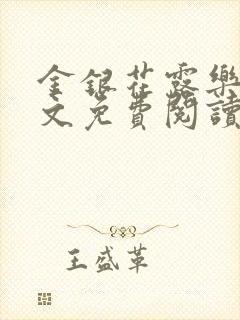 金銀花露樂
文免費閱讀
王盛革